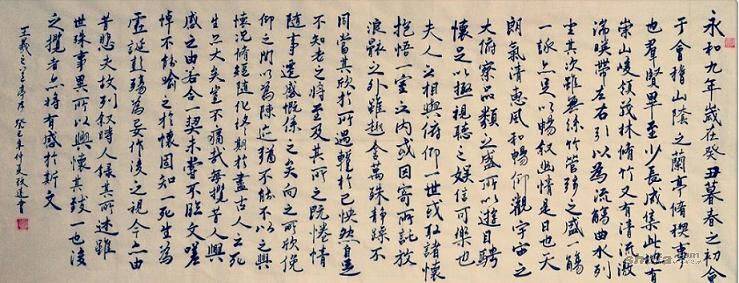 永和九年歲在癸丑暮春之初會
于會稽山陰之蘭亭脩稧事
也羣賢畢至少長咸集此地有
崇山峻領茂林脩竹又有清流激
湍暎帶左右引以為流觴曲水列
坐其次雖無絲竹管弦之盛一觴
一詠亦足以暢叙幽情是日也天
朗氣清惠風和暢仰觀宇宙之
大俯察品類之盛所以遊目騁
懷足以極視聽之娛信可樂也
夫人之相與俯仰一世或取諸懷
抱悟一室之內或因寄所託放
浪骸之外雖趣舍萬殊靜躁不
同當其欣於所遇暫於己快然自足
不知老之將至及其所之既惓情
隨事遷感慨係之矣向之所欣俛
仰之間以為陳迹猶不能不以之興
懷況脩短隨化終期於盡古人云死
生亦大矣豈不痛哉每攬昔人興
感之由若合一契未嘗不臨文嗟
悼不能喻之於懷固知一死生為
虛誕彭殤為妄作後之視今亦由
昔悲夫故列叙時人錄其所述雖
世殊事異所以興懷其致一也後
之攬者亦將有感於斯文
王羲之蘭亭序 癸巳年仲夏 書